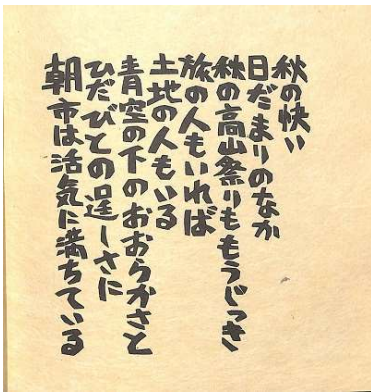 秋の快い
日だまりのなか
秋の高山祭りももうじっき
旅の人もいれば
土地の人もいる
青空の下のおおらかさと
ひだびとの逞しさに
朝市は活気に満ちている